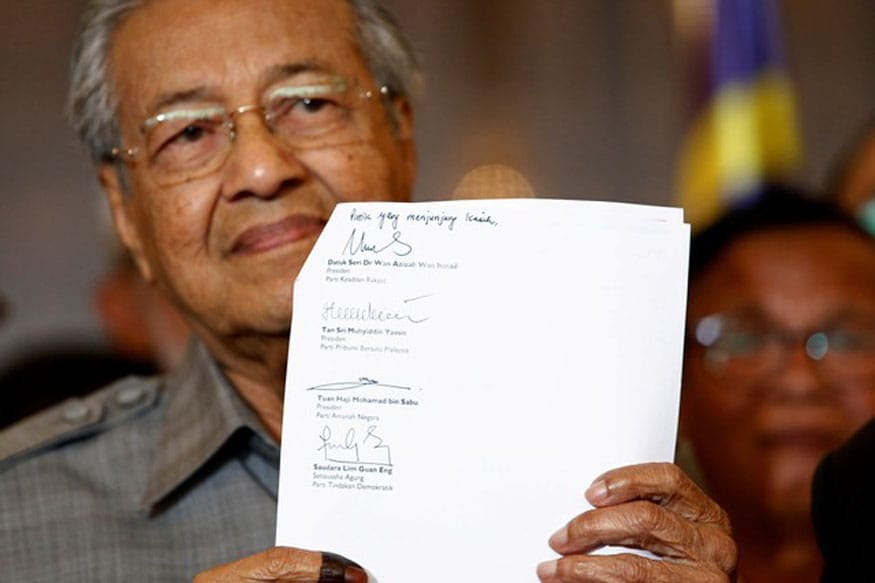 Patik yang menjunjung kasih,
Datuk Seri Dr Wan Azizah Wan Ismail
Presiden
Parti Keadilan Rakyat
Tan Sri Muhyiddin Yassin
Presiden
Parti Pribumi Bersatu Malaysia
Tuan Haji Mohamad bin Sabu
Presiden
Parti Amanah Negara
Saudara Lim Guan Eng
Setiausaha Agung
Parti Tindakan Demokratik